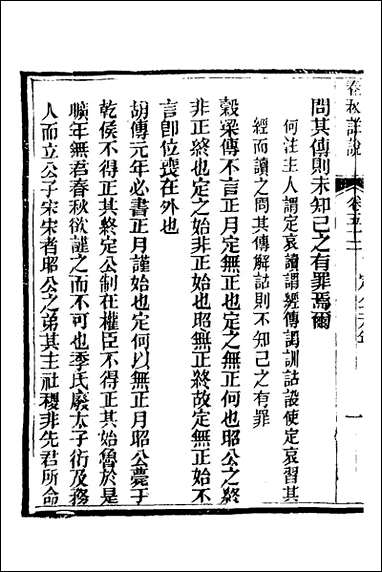 春秋詳說
卷五十二
問其傳則未知己之有罪焉爾
何注主人謂定哀讀謂經傳謂訓詁設使定哀習其
經而讀之問其傳解詁則不知己之有罪
穀梁傳不言正月定無正也定之無正何也昭公之終
非正終也定之始非正始也昭無正終故定無正始不
言即位喪在外也
胡傳元年必書正月謹始也定何以無正月昭公薨于
乾侯不得正其終定公制在權臣不得正其始魯於是
曠年無君春秋欲謹之而不可也季氏廢太子衍及務
人而立公子宋宋者昭公之弟其主社稷非先君所命